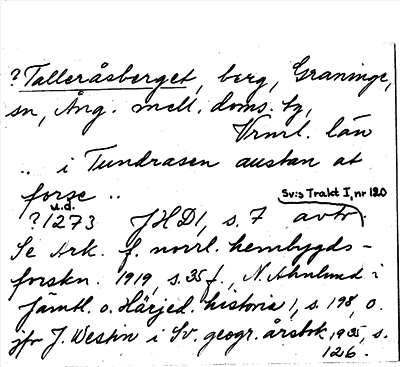 ? Talleråsberget, berg, Graninge,
sn, Ång. mell. doms. hg,
Vrnl. län
.. i Tundrasen austan at
forse ..
Sv:s Trakt I, nr 120
u.d.
? 1273 JHD1, s. 7 avtr.
Se Ark. f. norrl. hembygds-
forskn. 1919, s. 35 f., N. Ahnlund i
Jämtl. o. Härjed. historia 1, s. 198, o.
jfr J. Westin i Sv. geogr. årsbok 1935, s.
126.